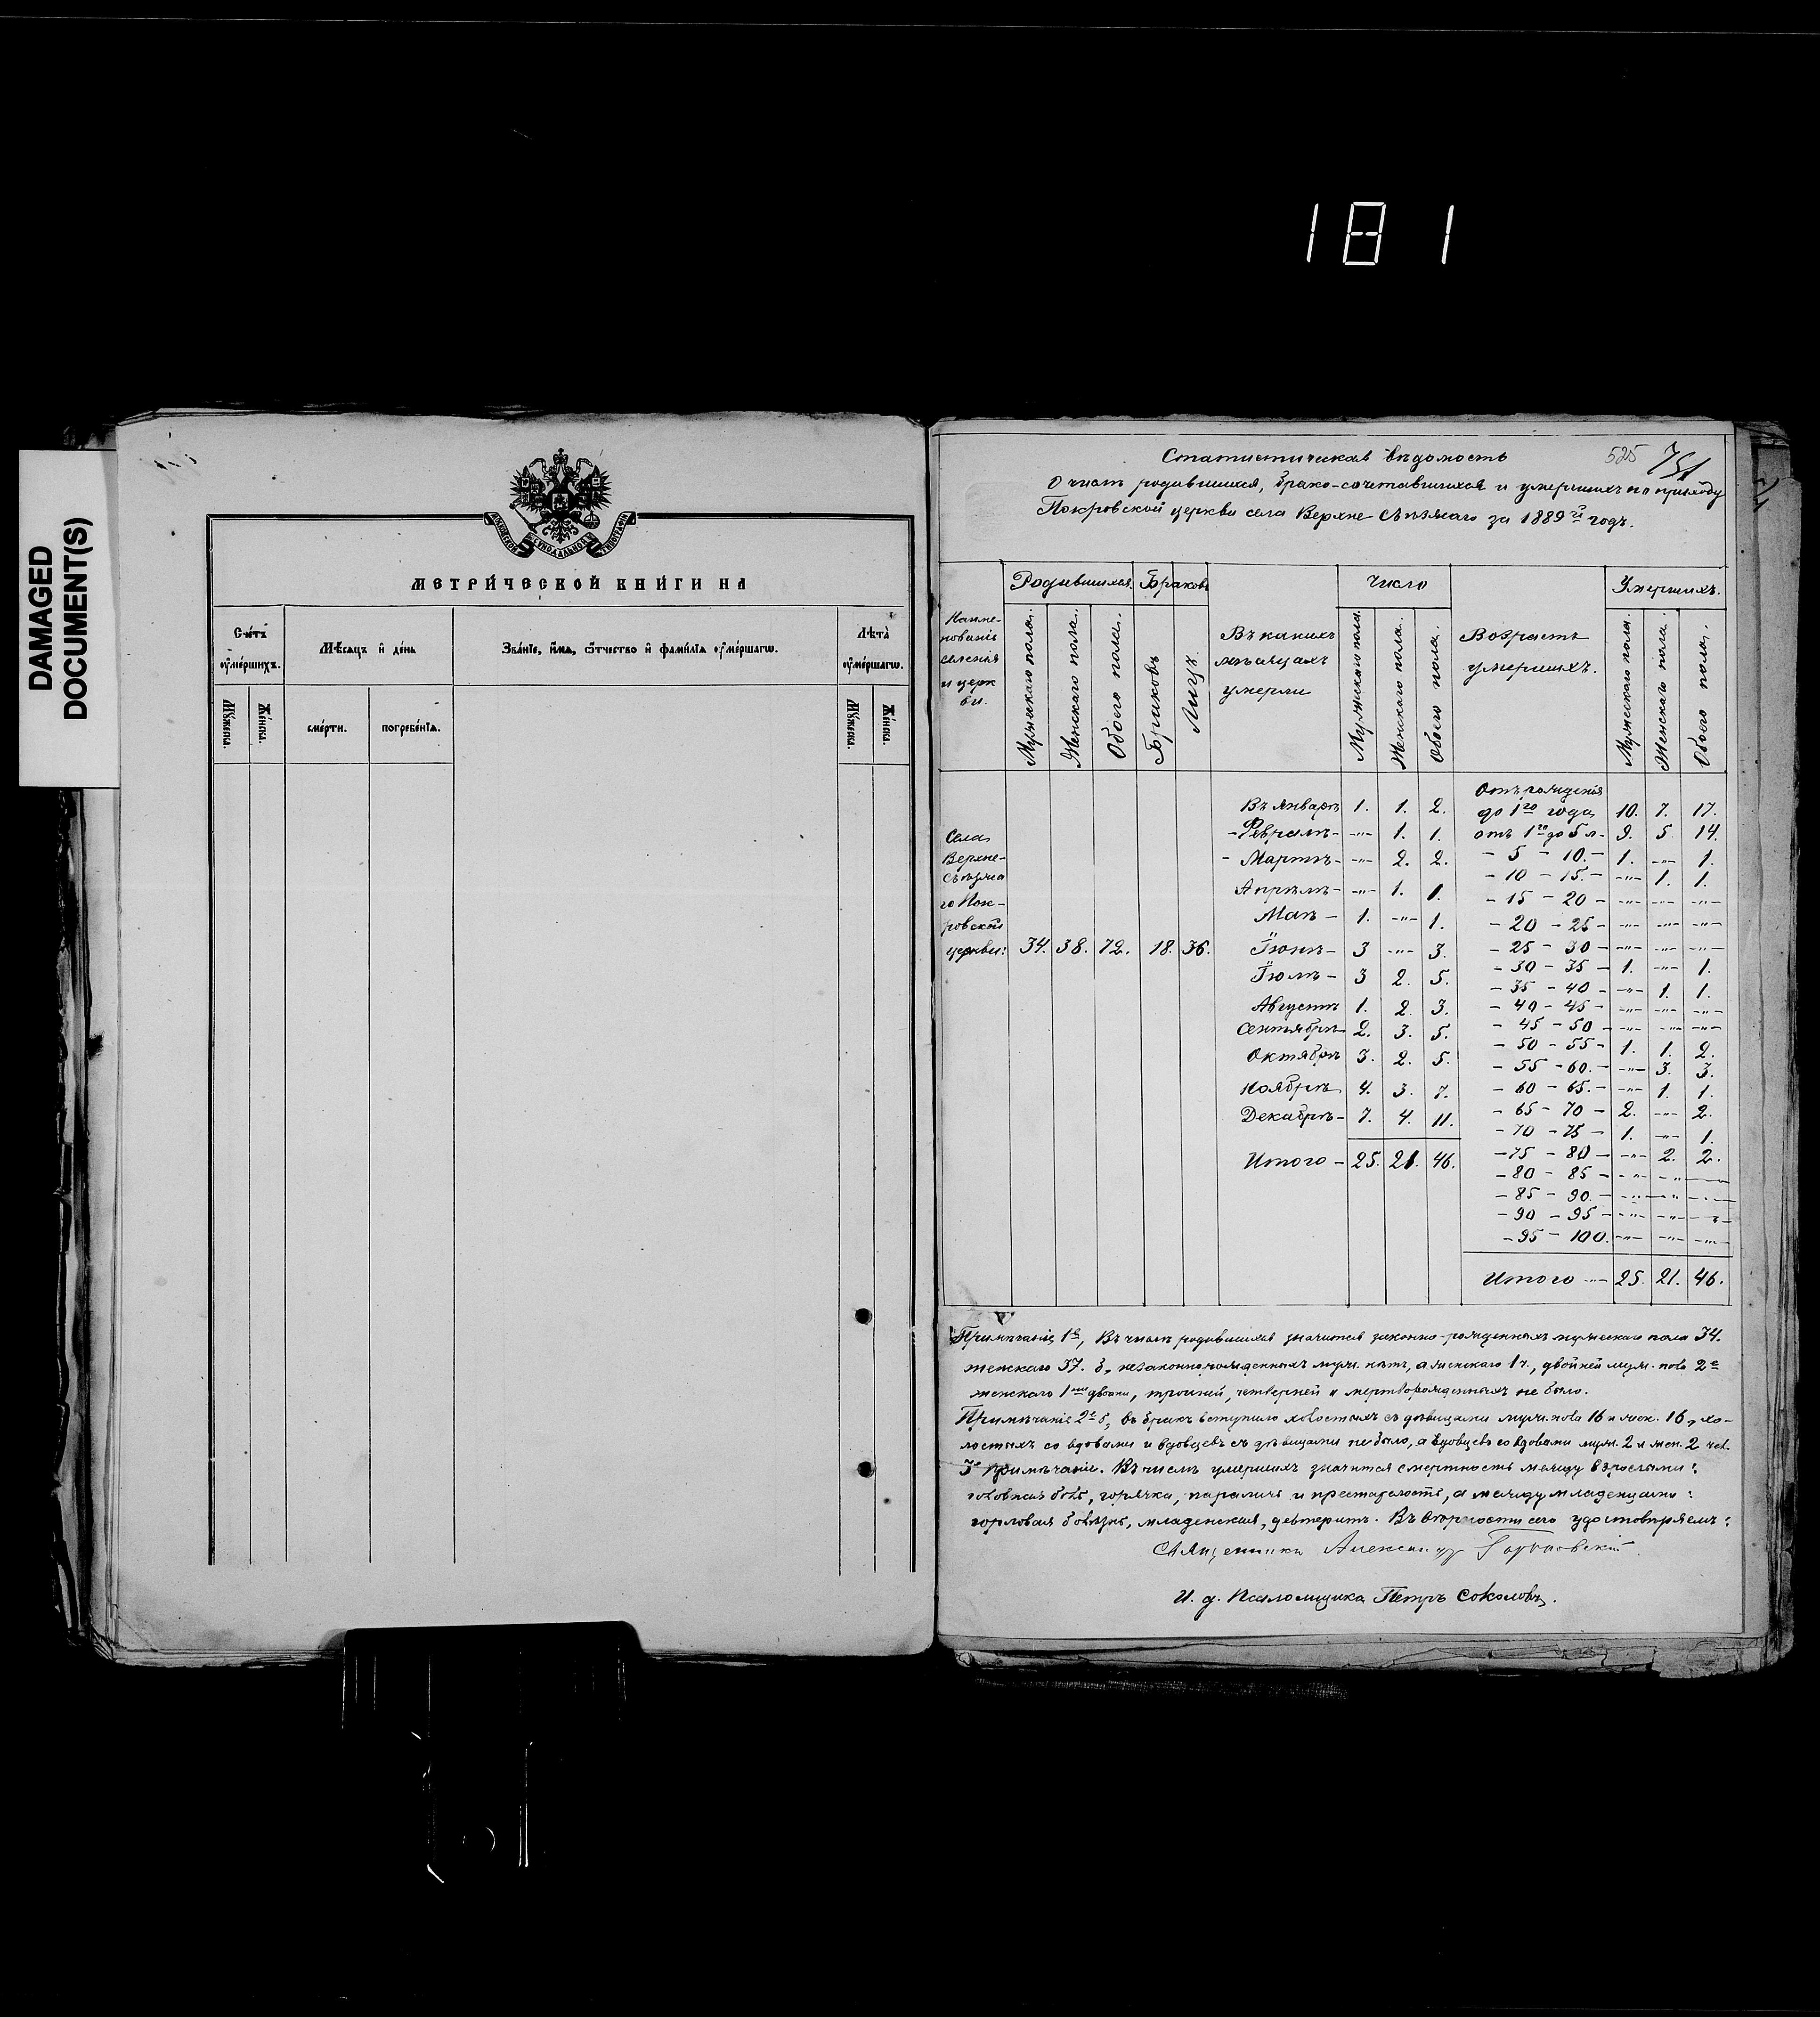 181
DAMAGED
DOCUMENT(S)
МОСКОВСКОЙ СѴНОДАЛЬНОЙ ТИПОГРАФІИ
МЕТРИ́ЧЕСКОЙ КНИ́ГИ НА
Сче́тъ ᲂу҆ме́ршихъ.
Мѣ́сяцъ и҆ де́нь
Зва́нїе, и҆́мѧ, ѻ҆́тчество и҆ фами́лїѧ ᲂу҆ме́ршагѡ.
Лѣ́та ᲂу҆ме́ршагѡ.
Мꙋ́жеска.
Же́нска.
сме́рти.
погребе́нїѧ.
Мꙋ́жеска.
Же́нска.
525 751
Статистическая вѣдомость
О числѣ родившихся, брако-сочетавшихся и умершихъ по приходу
Покровской церкви села Верхне-Съѣзжаго за 1889й годъ.
Наиме-
нованіе
селенія
и церк
ви.
Родившихся.
Мужскаго пола.
Женскаго пола.
Обоего пола.
Браковъ
Браковъ
Лицъ.
Въ какихъ
мѣсяцахъ
умерли
Число
Мужскаго пола.
Женскаго пола.
Обоего пола.
Возрастъ
умершихъ.
Умершихъ.
Мужескаго пола.
Женскаго пола.
Обоего пола.
Села
Верхне-
Съѣзжа
го Пок-
ровской
церкви: 34. 38. 72. 18. 36.
Въ Январѣ 1. 1. 2.
- Февралѣ - -"- 1. 1.
- Мартѣ - -"- 2. 2.
Апрѣлѣ - -"- 1. 1.
Маѣ - 1. -"- 1.
Іюнѣ - 3 -"- 3.
Іюлѣ - 3 2. 5.
Августѣ 1. 2. 3.
Сентябрѣ 2. 3. 5.
Октябрѣ 3. 2. 5.
Ноябрѣ 4. 3. 7.
Декабрѣ - 7. 4. 11.
Итого - 25. 21. 46.
Отъ рожденія
до 1го года 10. 7. 17.
отъ 1го до 5 л. 9. 5 14.
- 5 - 10. - 1. -"- 1.
- 10 - 15. - -"- 1. 1.
- 15 - 20 - -"- -"- -"-
- 20 - 25 - -"- -"- -"-
- 25 - 30 - -"- -"- -"-
- 30 - 35 - 1. -"- 1.
- 35 - 40 - -"- 1. 1.
- 40 - 45 - -"- -"- -"-
- 45 - 50 - -"- -"- -"-
- 50 - 55 - 1. 1. 2.
- 55 - 60. - -"- 3. 3.
- 60 - 65. - -"- 1. 1.
- 65 - 70 - 2. -"- 2.
- 70 - 75 - 1. -"- 1.
- 75 - 80 - -"- 2. 2.
- 80 - 85 - -"- -"- -"-
- 85 - 90. - -"- -"- -"-
- 90 - 95 - -"- -"- -"-
- 95 - 100. -"- -"- -"-
Итого - 25. 21. 46.
Примѣчаніе 1е, Въ числѣ родившихся значится законно-рожденныхъ мужескаго пола 34.
женскаго 37. б, незаконнорожденныхъ муж. нѣтъ, а женскаго 1 ч., двойней муж. пола 2е
женскаго 1 двойни, тройней, четверней и мертворожденныхъ не было.
Примѣчаніе 2е б, въ бракъ вступило холостыхъ съ дѣвицами муж. пола 16 и жен. 16, хо-
лостыхъ со вдовами и вдовцевъ съ дѣвицами не было, а вдовцевъ со вдовами муж. 2 и жен. 2 чел.
3е примѣчаніе. Въ числѣ умершихъ значится смертность между взрослыми:
головная боль, горячка, параличъ и престарѣлость, а между младенцами:
горловая болѣзнь, младенская, дефтеритъ. Въ вѣрности сего удостовѣряемъ:
Священникъ Александр
И. д. Псаломщика Петръ Соколовъ.